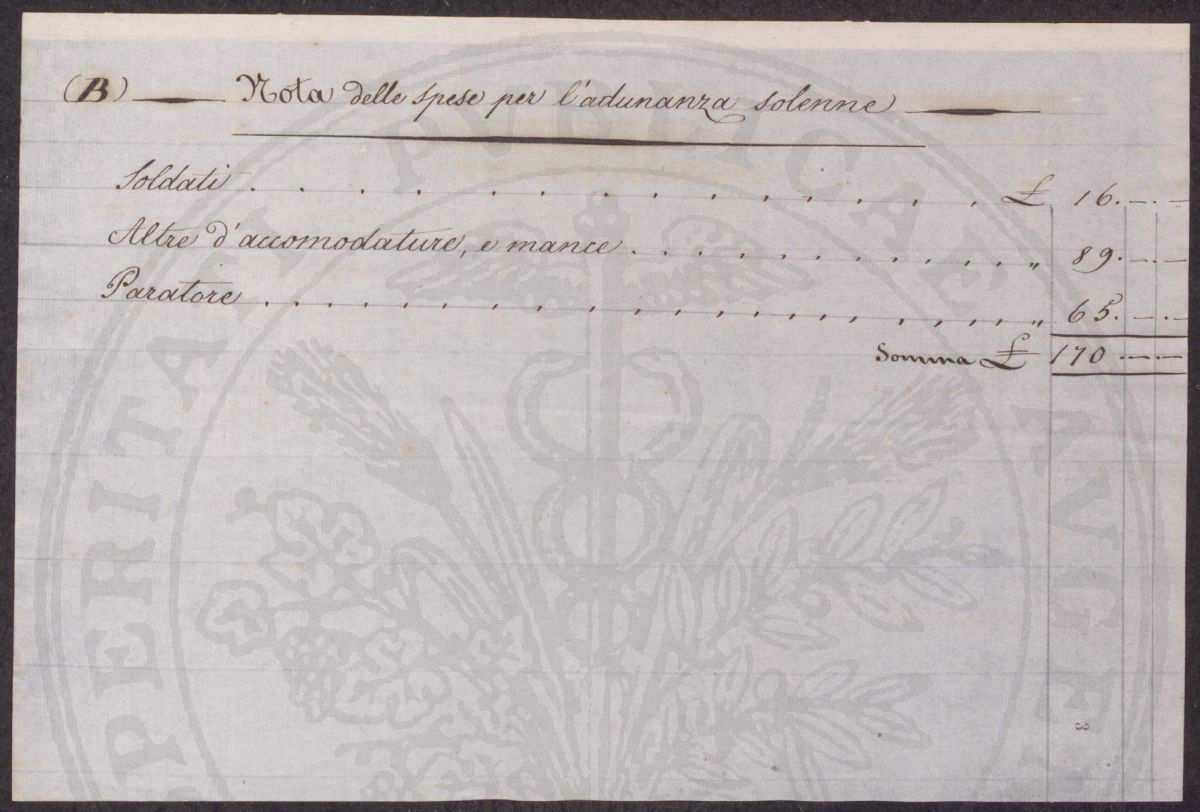 (B) — Nota delle spese per l'adunanza solenne —
Soldati . . . . . . . . . . . . . . . £ 16. —. —
Altre d'accomodature, e mance . . . . . . . . . . . . " 89. —. —
Paratore . . . . . . . . . . . . . . . . . . . " 65. —. —
Somma £ 170 . —. —
PERITATI PUBLICAE AVGE
3